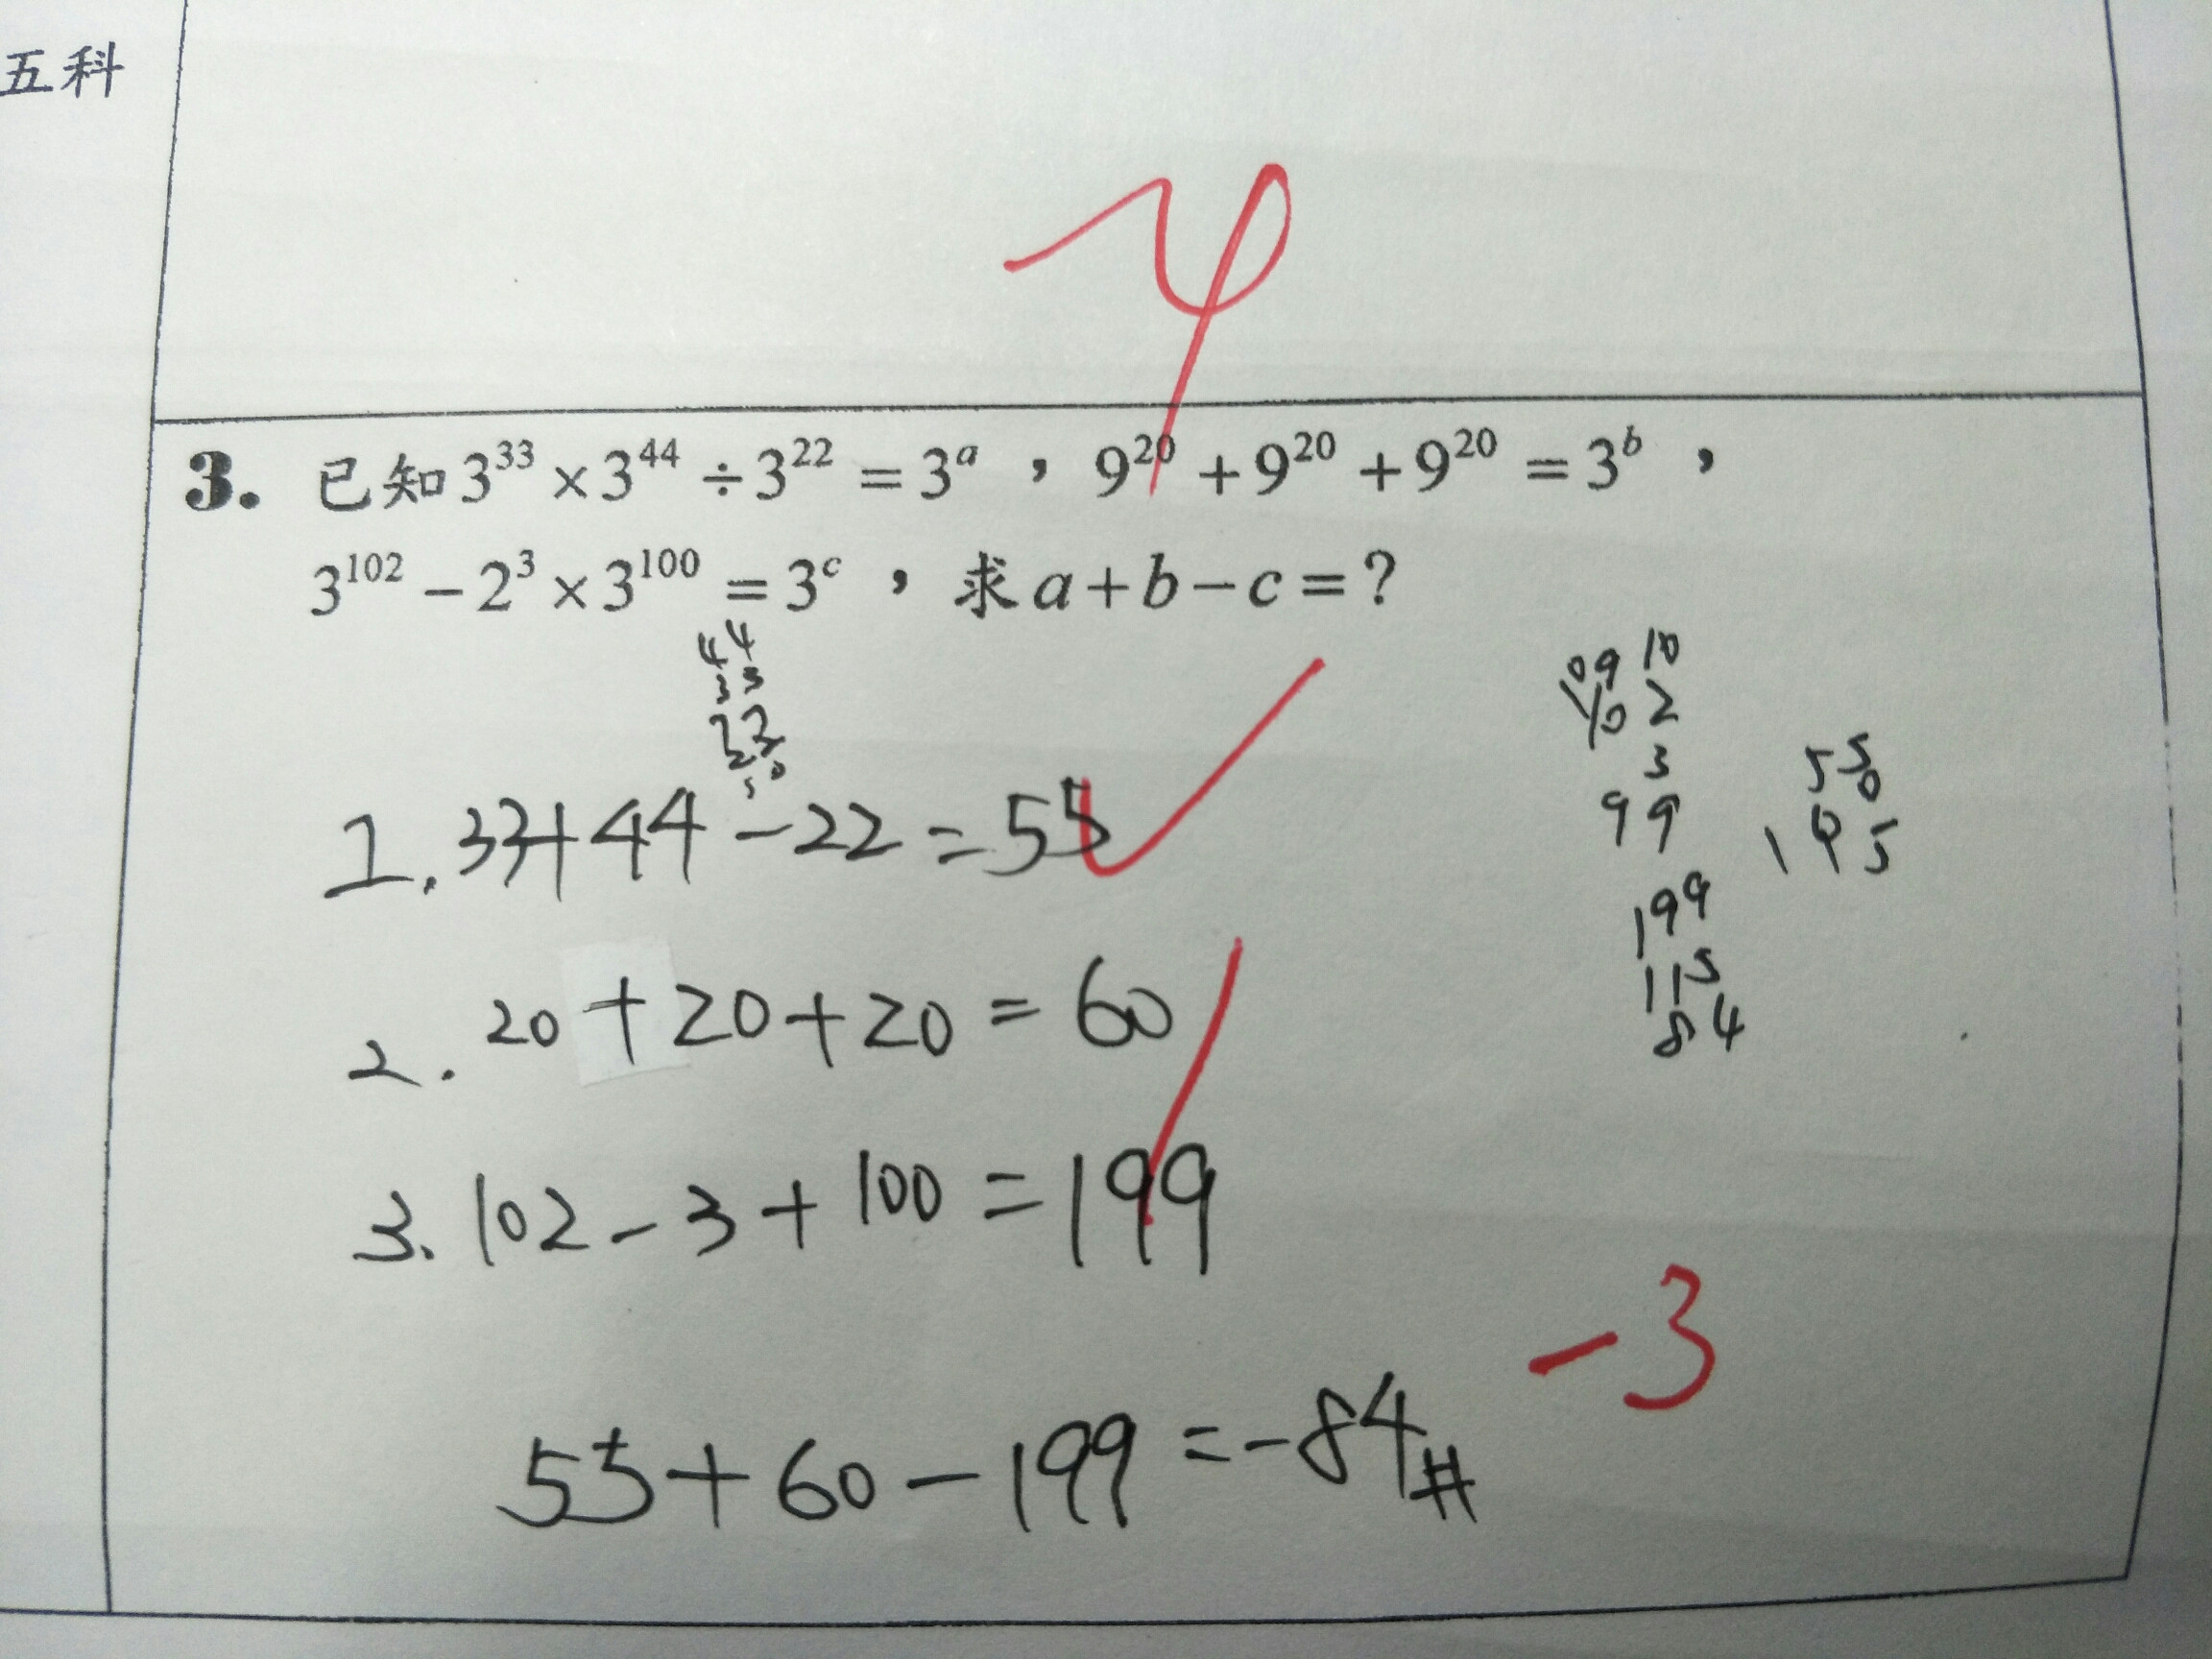 五科
3. 已知 3³³ × 3⁴⁴ ÷ 3²² = 3ᵃ，9²⁰ + 9²⁰ + 9²⁰ = 3ᵇ，
3¹⁰² − 2³ × 3¹⁰⁰ = 3ᶜ，求 a + b − c = ?
44
33
22
1. 33+44−22=55
2. 20+20+20=60
3. 102−3+100=199
55+60−199=−84#
−3
09 10
10 2
3
99
199
115
84
55